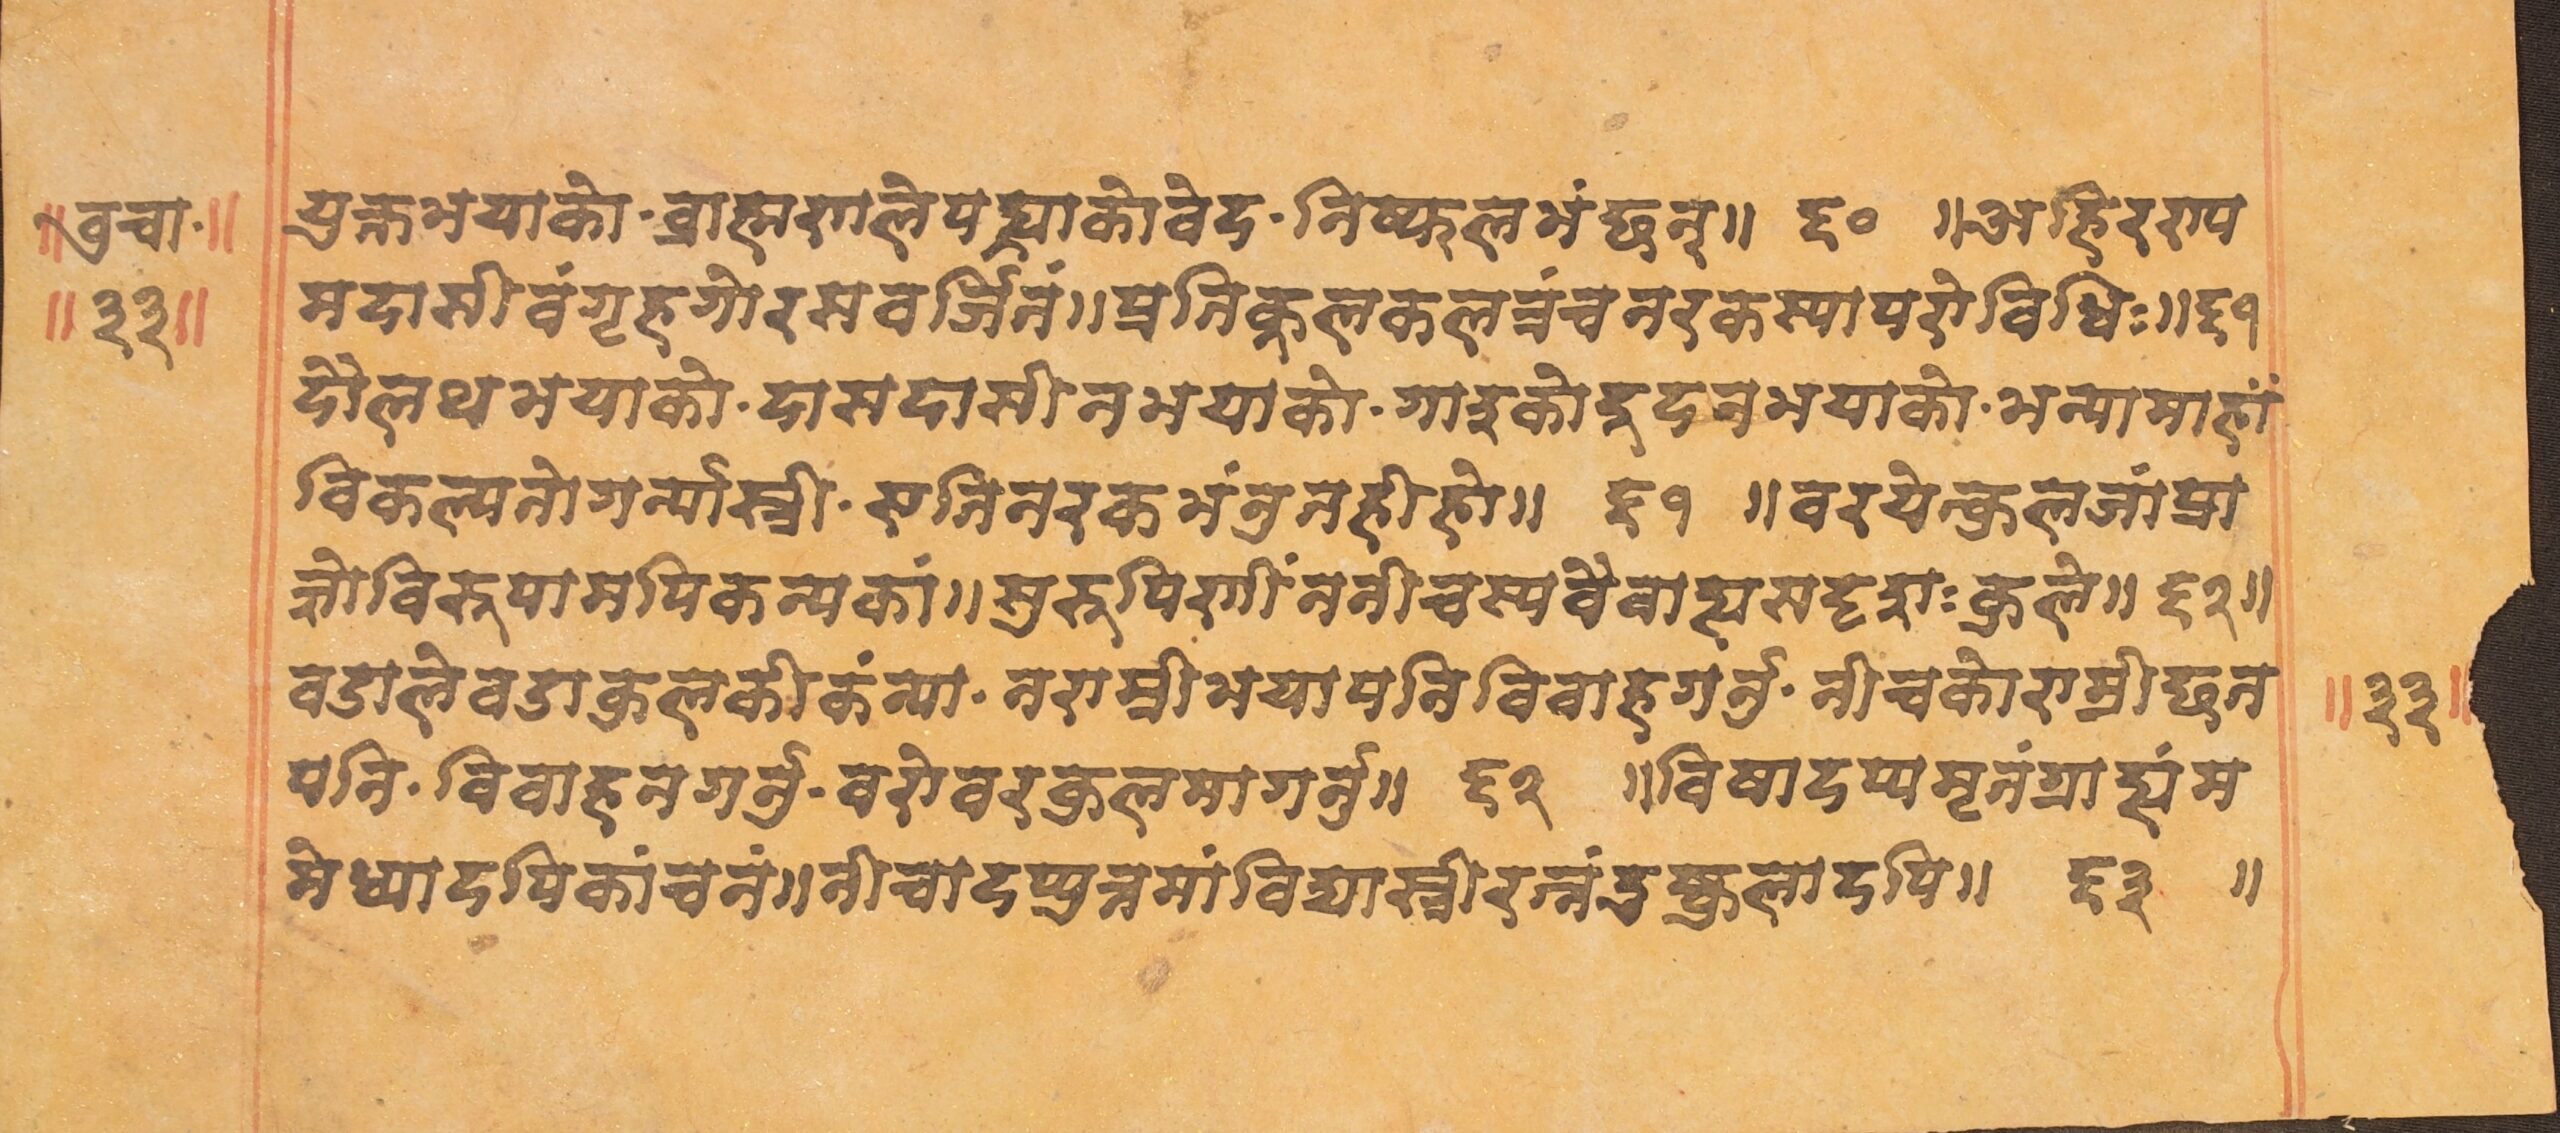 ॥वृचा॰॥
॥३३॥
युक्तभयाको॰ ब्राह्मणले पढ्याको वेद॰ निष्फल भंछन्॥ ६० ॥अहिरण्य
मदासीवं गृहगोरसवर्जितं॥ प्रतिकूलकलत्रं च नरकस्यापरो विधिः॥६१
दौलथ भयाको॰ दासदासी नभयाको॰ गाइको दुद नभयाको॰ भन्यामाहाँ
विकल्प तो गर्न्या स्त्री॰ एति नरक भंनु नही हो॥ ६१ ॥वरयेत्कुलजां प्रा
ज्ञो विरूपामपि कन्यकां॥ सुरुपिणीं न नीचस्य वैवाह्यसदृशः कुले॥ ६२॥
वडाले वडा कुलकी कंन्या॰ नराम्री भया पनि विवाह गर्नु॰ नीचको राम्री छन
पनि॰ विवाह न गर्नु॰ वरोवर कुलमा गर्नु॥ ६२ ॥विषादप्यमृतं ग्राह्यं म
मेध्यादपि कांचनं॥ नीचादप्युत्तमां विद्या स्त्रीरत्नं दुष्कुलादपि॥ ६३ ॥
॥३३॥